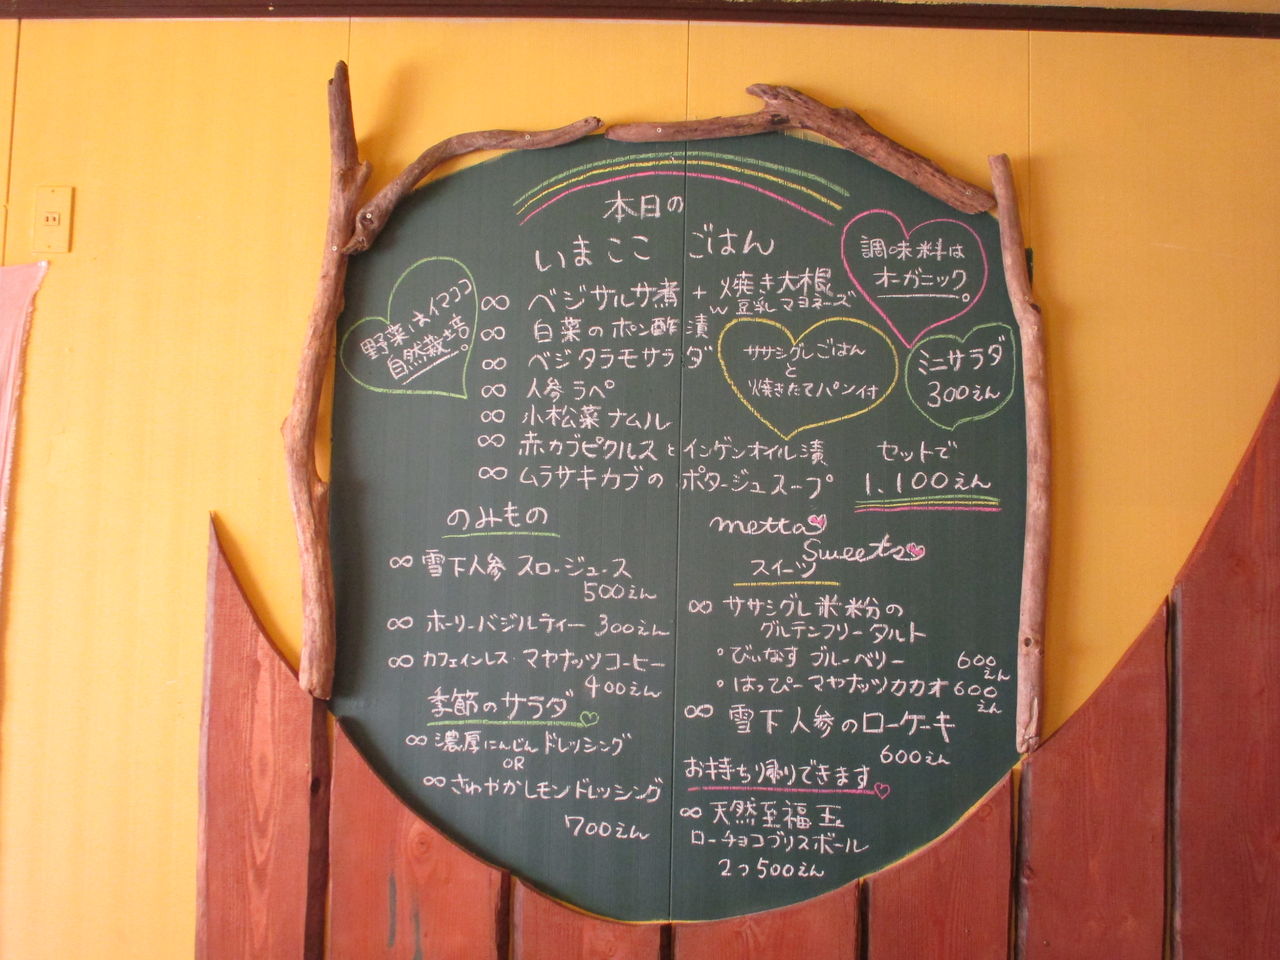 本日の
いまここ ごはん
調味料は
オーガニック。
野菜はイマココ
自然栽培。
∞ ベジサルサ煮 + 焼き大根
w 豆乳マヨネーズ
∞ 白菜のポン酢漬
∞ ベジタラモサラダ
∞ 人参ラペ
∞ 小松菜ナムル
∞ 赤カブピクルスとインゲンオイル漬
∞ ムラサキカブの ポタージュスープ
ササシグレごはん
と
焼きたてパン付
ミニサラダ
300えん
セットで
1,100えん
のみもの
∞ 雪下人参 スロージュース
500えん
∞ ホーリーバジルティー 300えん
∞ カフェインレス・マヤナッツコーヒー
400えん
季節のサラダ
∞ 濃厚にんじんドレッシング
OR
∞ さわやかレモンドレッシング
700えん
metta
Sweets
スイーツ
∞ ササシグレ米粉の
グルテンフリータルト
° びぃなす ブルーベリー 600えん
° はっぴーマヤナッツカカオ 600えん
∞ 雪下人参のローケーキ
600えん
お持ち帰りできます
∞ 天然至福玉
ローチョコブリスボール
2つ500えん